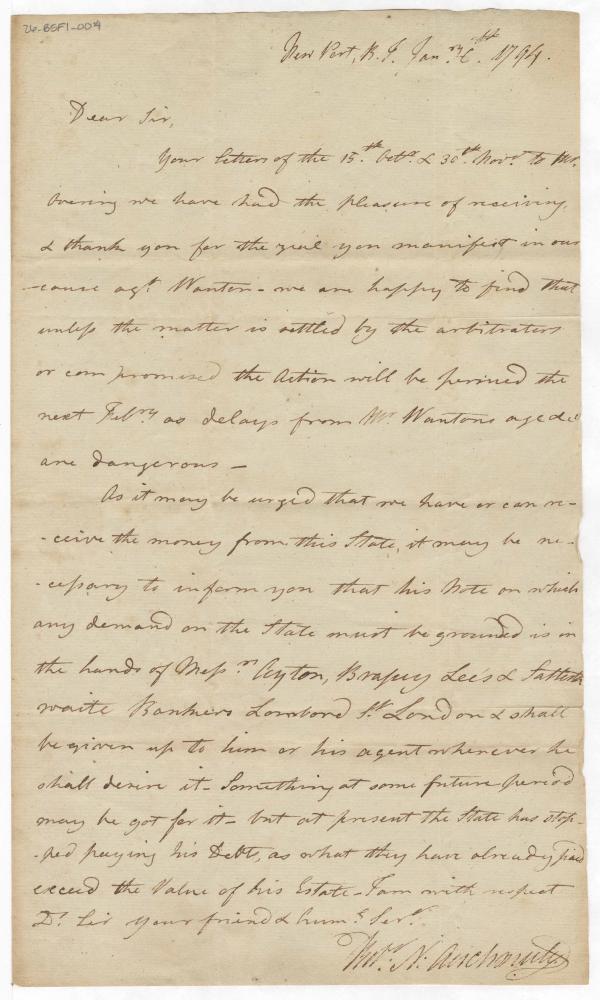 26-BSF1-004
New Port, R. I. Jan.ry 6th. 1794.
Dear Sir,
Your letters of the 15.th Octr. & 30.th Novr. to Mr.
Overing we have had the pleasure of receiving,
& thank you for the zeal you manifest in our
-cause agt. Wanton - we are happy to find that
unless the matter is settled by the arbitrators
or compromised the Action will be persued the
next Feb.ry as delays from Mr. Wantons age &c
are dangerous -
As it may be urged that we have or can re-
-ceive the money from this State, it may be ne-
-cessary to inform you that his Note on which
any demand on the State must be grounded is in
the hands of Mess.rs Ayton, Brassey Lees & Satterth
waite Bankers Lombord St. London & shall
be given up to him or his agent whenever he
shall desire it - Something at some future period
may be got for it - but at present the State has stop-
-ped paying his Debt, as what they have already paid
exceed the Value of his Estate - I am with respect
Dr. Sir your friend & hum.e Servt.
Robt. N. Auchmuty